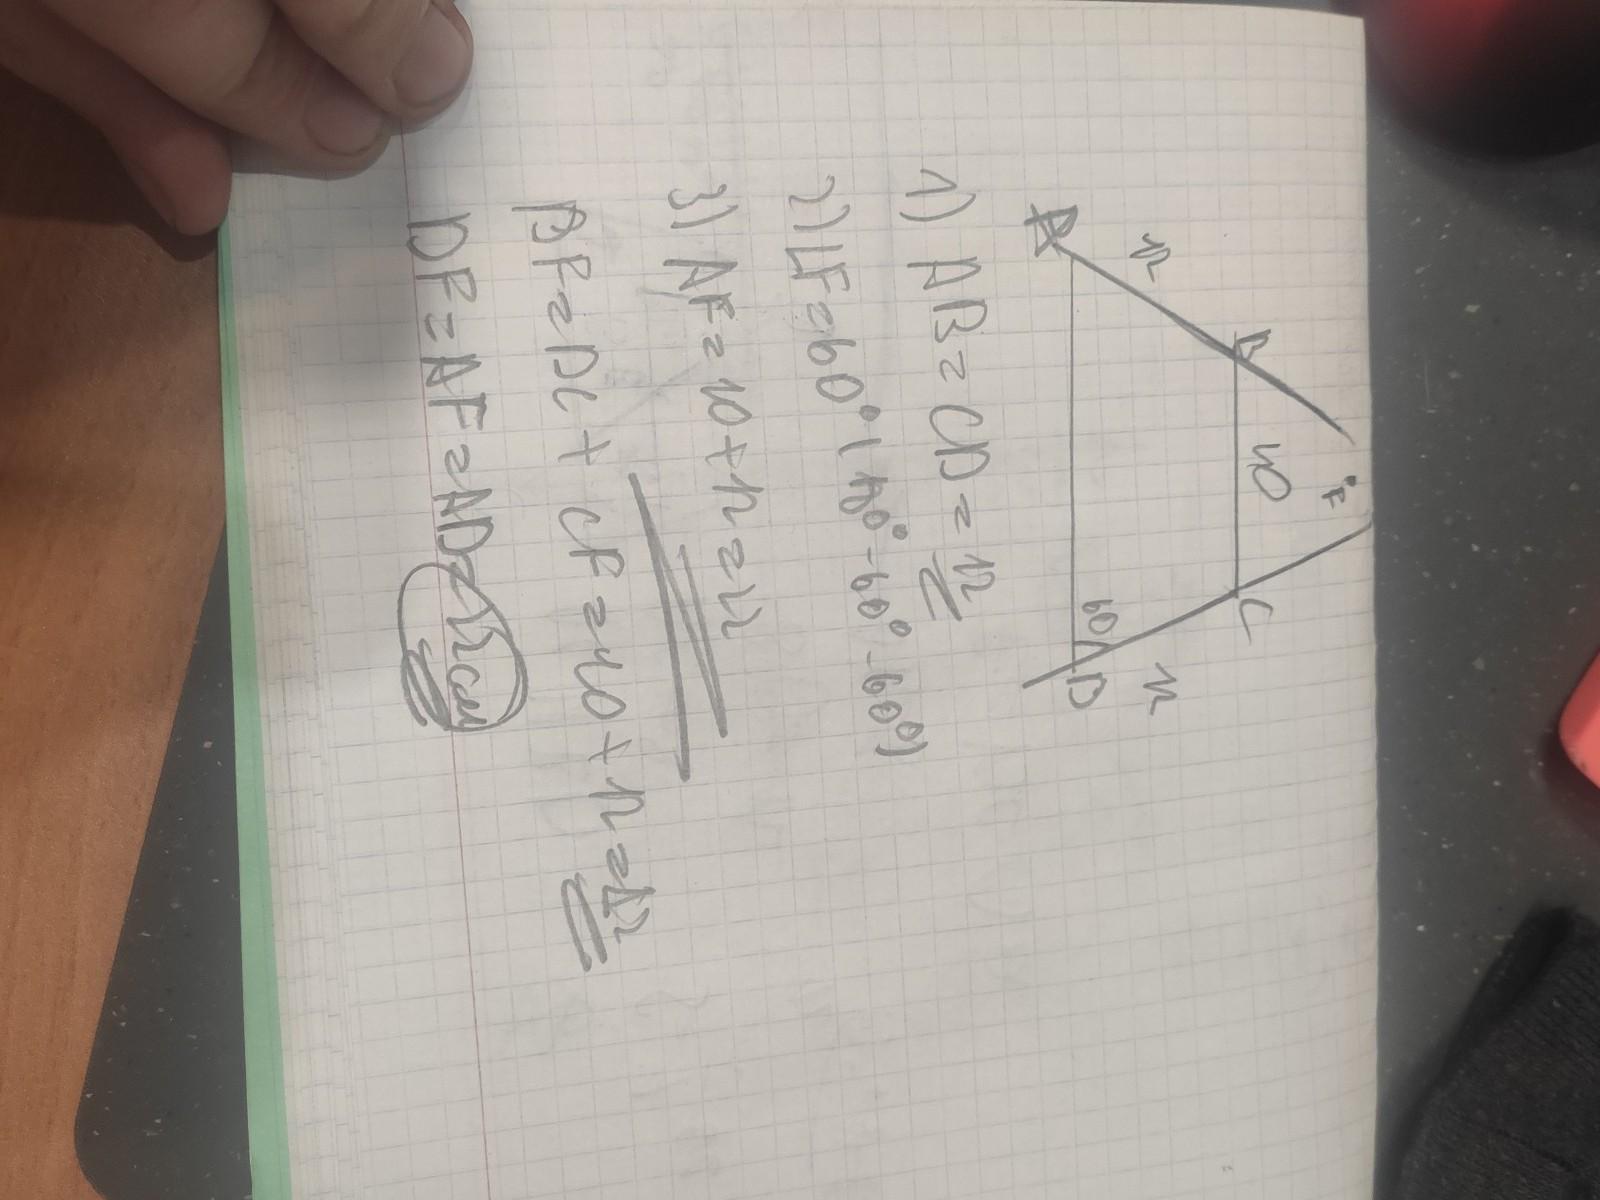 F
12
B
10
C
12
60
D
1) AB = CD = 12
2) LF = 60° (180° - 60° - 60°)
3) AF = 10 + 12 = 22
DF = DC + CF = 10 + 12 = 22
DF = AF = AD =